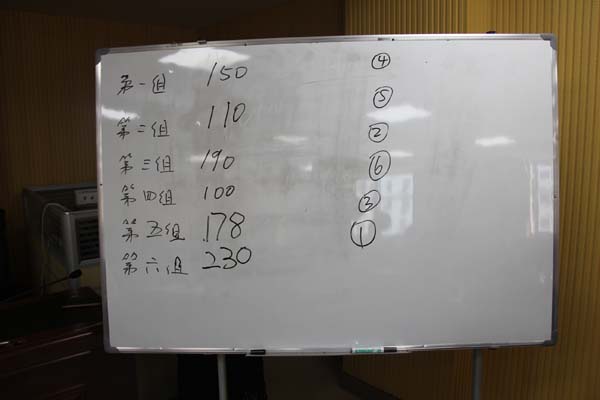 第一组 150 ④
第二组 110 ⑤
第三组 190 ②
第四组 100 ⑥
第五组 178 ③
第六组 230 ①